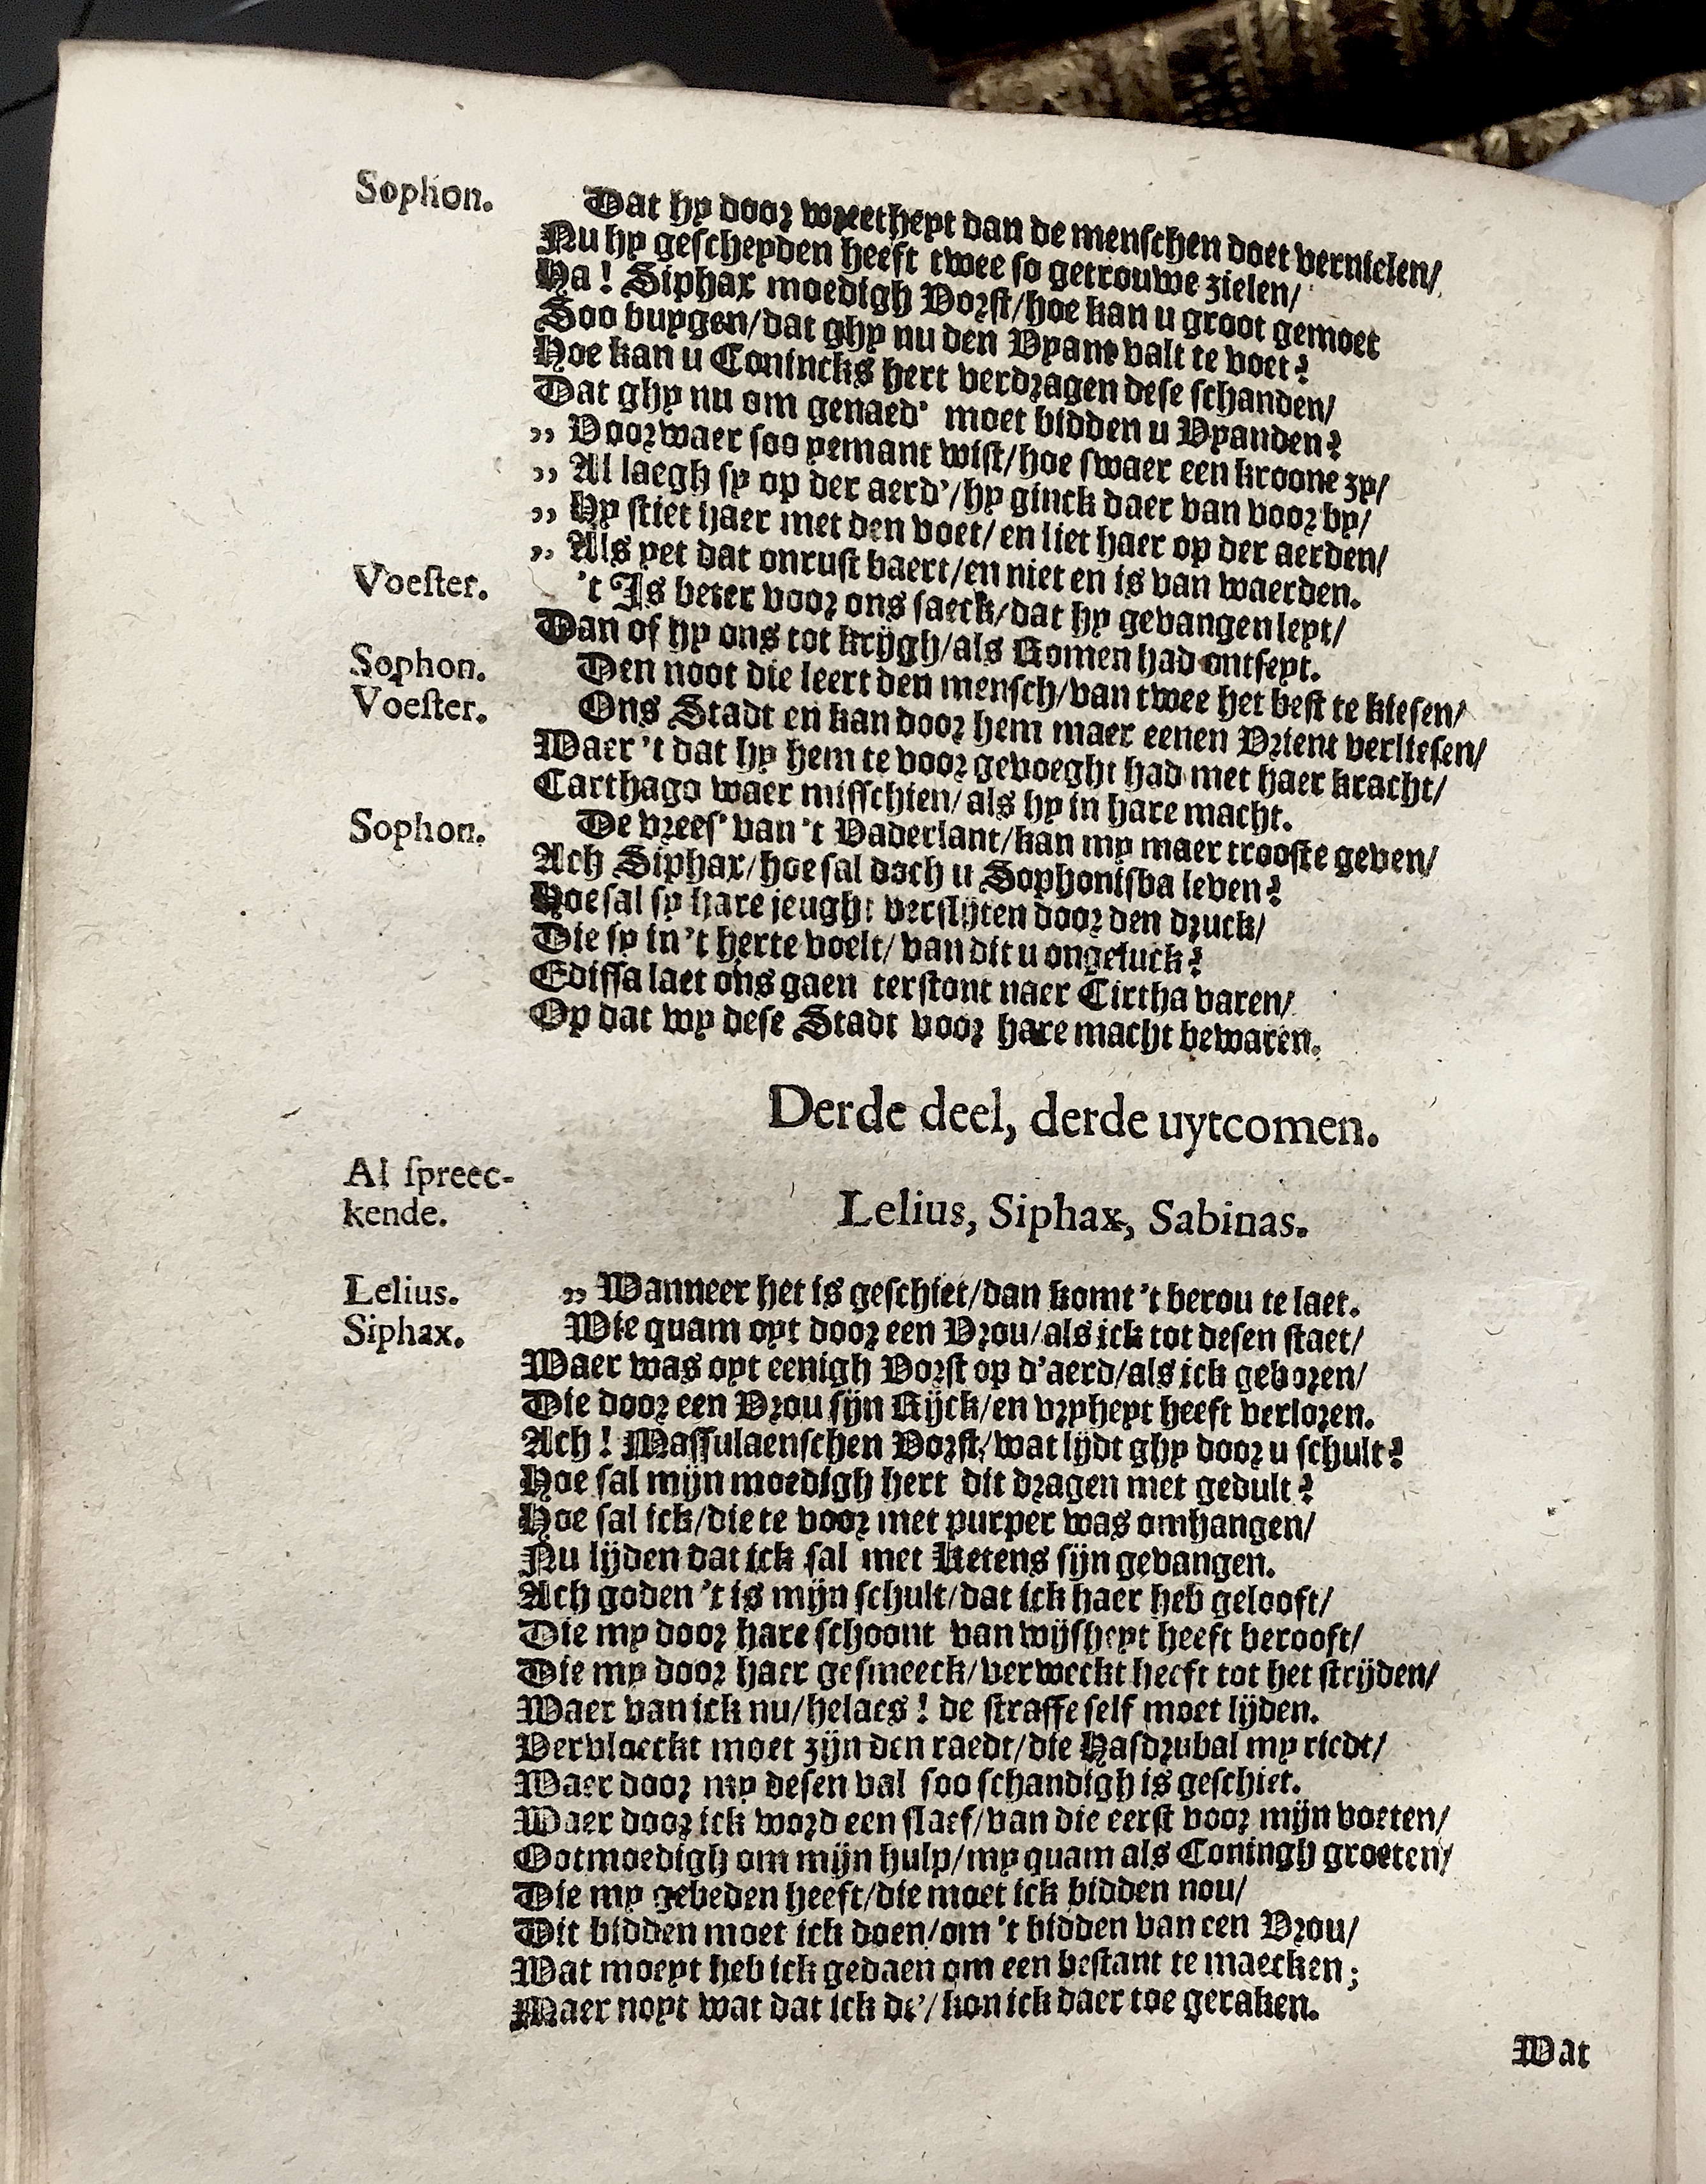 Sophon. Dat hy door wreetheyt dan de menschen doet vernielen/
Nu hy gescheyden heeft twee so getrouwe zielen/
Ha! Siphax moedigh Vorst/hoe kan u groot gemoet
Soo buygen/dat ghy nu den Vyant valt te voet?
Hoe kan u Conincks hert verdragen dese schanden/
Dat ghy nu om genaed' moet bidden u Vyanden?
„ Voorwaer soo yemant wist/hoe swaer een kroone zy/
„ Al laegh sy op der aerd'/hy ginck daer van voor by/
„ Hy stiet haer met den voet/en liet haer op der aerden/
„ Als yet dat onrust baert/en niet en is van waerden.
Voester. 't Is beter voor ons saeck/dat hy gevangen leyt/
Dan of hy ons tot krijgh/als Romen had ontseyt.
Sophon. Den noot die leert den mensch/van twee het best te kiesen/
Voester. Ons Stadt en kan door hem maer eenen Vrient verliesen/
Waer 't dat hy hem te voor gevoeght had met haer kracht/
Carthago waer misschien/als hy in hare macht.
Sophon. De vrees' van 't Vaderlant/kan my maer trooste geven/
Ach Siphax/hoe sal doch u Sophonisba leven?
Hoe sal sy hare jeught verslijten door den druck/
Die sy in 't herte voelt/van dit u ongeluck?
Edissa laet ons gaen terstont naer Cirtha varen/
Op dat wy dese Stadt voor hare macht bewaren.
Derde deel, derde uytcomen.
Al spreec-
kende.
Lelius, Siphax, Sabinas.
Lelius. „ Wanneer het is geschiet/dan komt 't berou te laet.
Siphax. Wie quam oyt door een Vrou/als ick tot desen staet/
Waer was oyt eenigh Vorst op d'aerd/als ick geboren/
Die door een Vrou sijn Rijck/en vryheyt heeft verloren.
Ach! Massulaenschen Vorst/wat lijdt ghy door u schult?
Hoe sal mijn moedigh hert dit dragen met gedult?
Hoe sal ick/die te voor met purper was omhangen/
Nu lijden dat ick sal met Ketens sijn gevangen.
Ach goden 't is mijn schult/dat ick haer heb gelooft/
Die my door hare schoont van wijsheyt heeft berooft/
Die my door haer gesmeeck/verweckt heeft tot het strijden/
Waer van ick nu/helaes! de straffe self moet lijden.
Vervloeckt moet zijn den raedt/die Hasdrubal my riedt/
Waer door my desen val soo schandigh is geschiet.
Waer door ick word een slaef/van die eerst voor mijn voeten/
Ootmoedigh om mijn hulp/my quam als Coningh groeten/
Die my gebeden heeft/die moet ick bidden nou/
Dit bidden moet ick doen/om 't bidden van een Vrou/
Wat moeyt heb ick gedaen om een bestant te maecken;
Maer noyt wat dat ick de'/kon ick daer toe geraken.
Wat